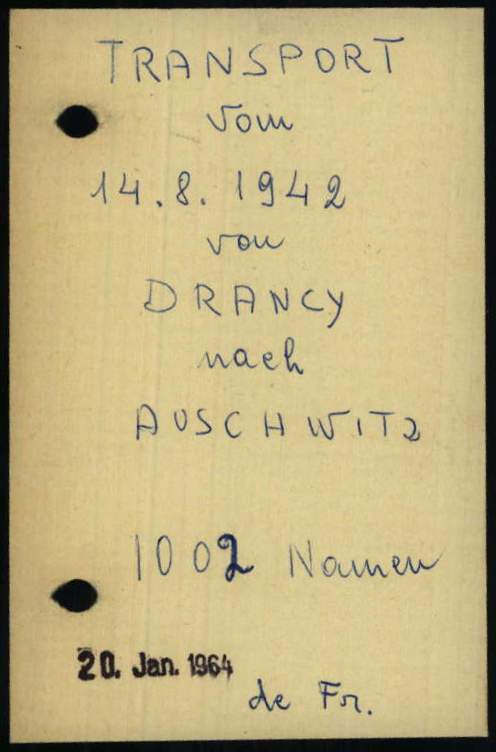 TRANSPORT
vom
14.8.1942
von
DRANCY
nach
AUSCHWITZ
1002 Namen
20. Jan. 1964
de Fr.